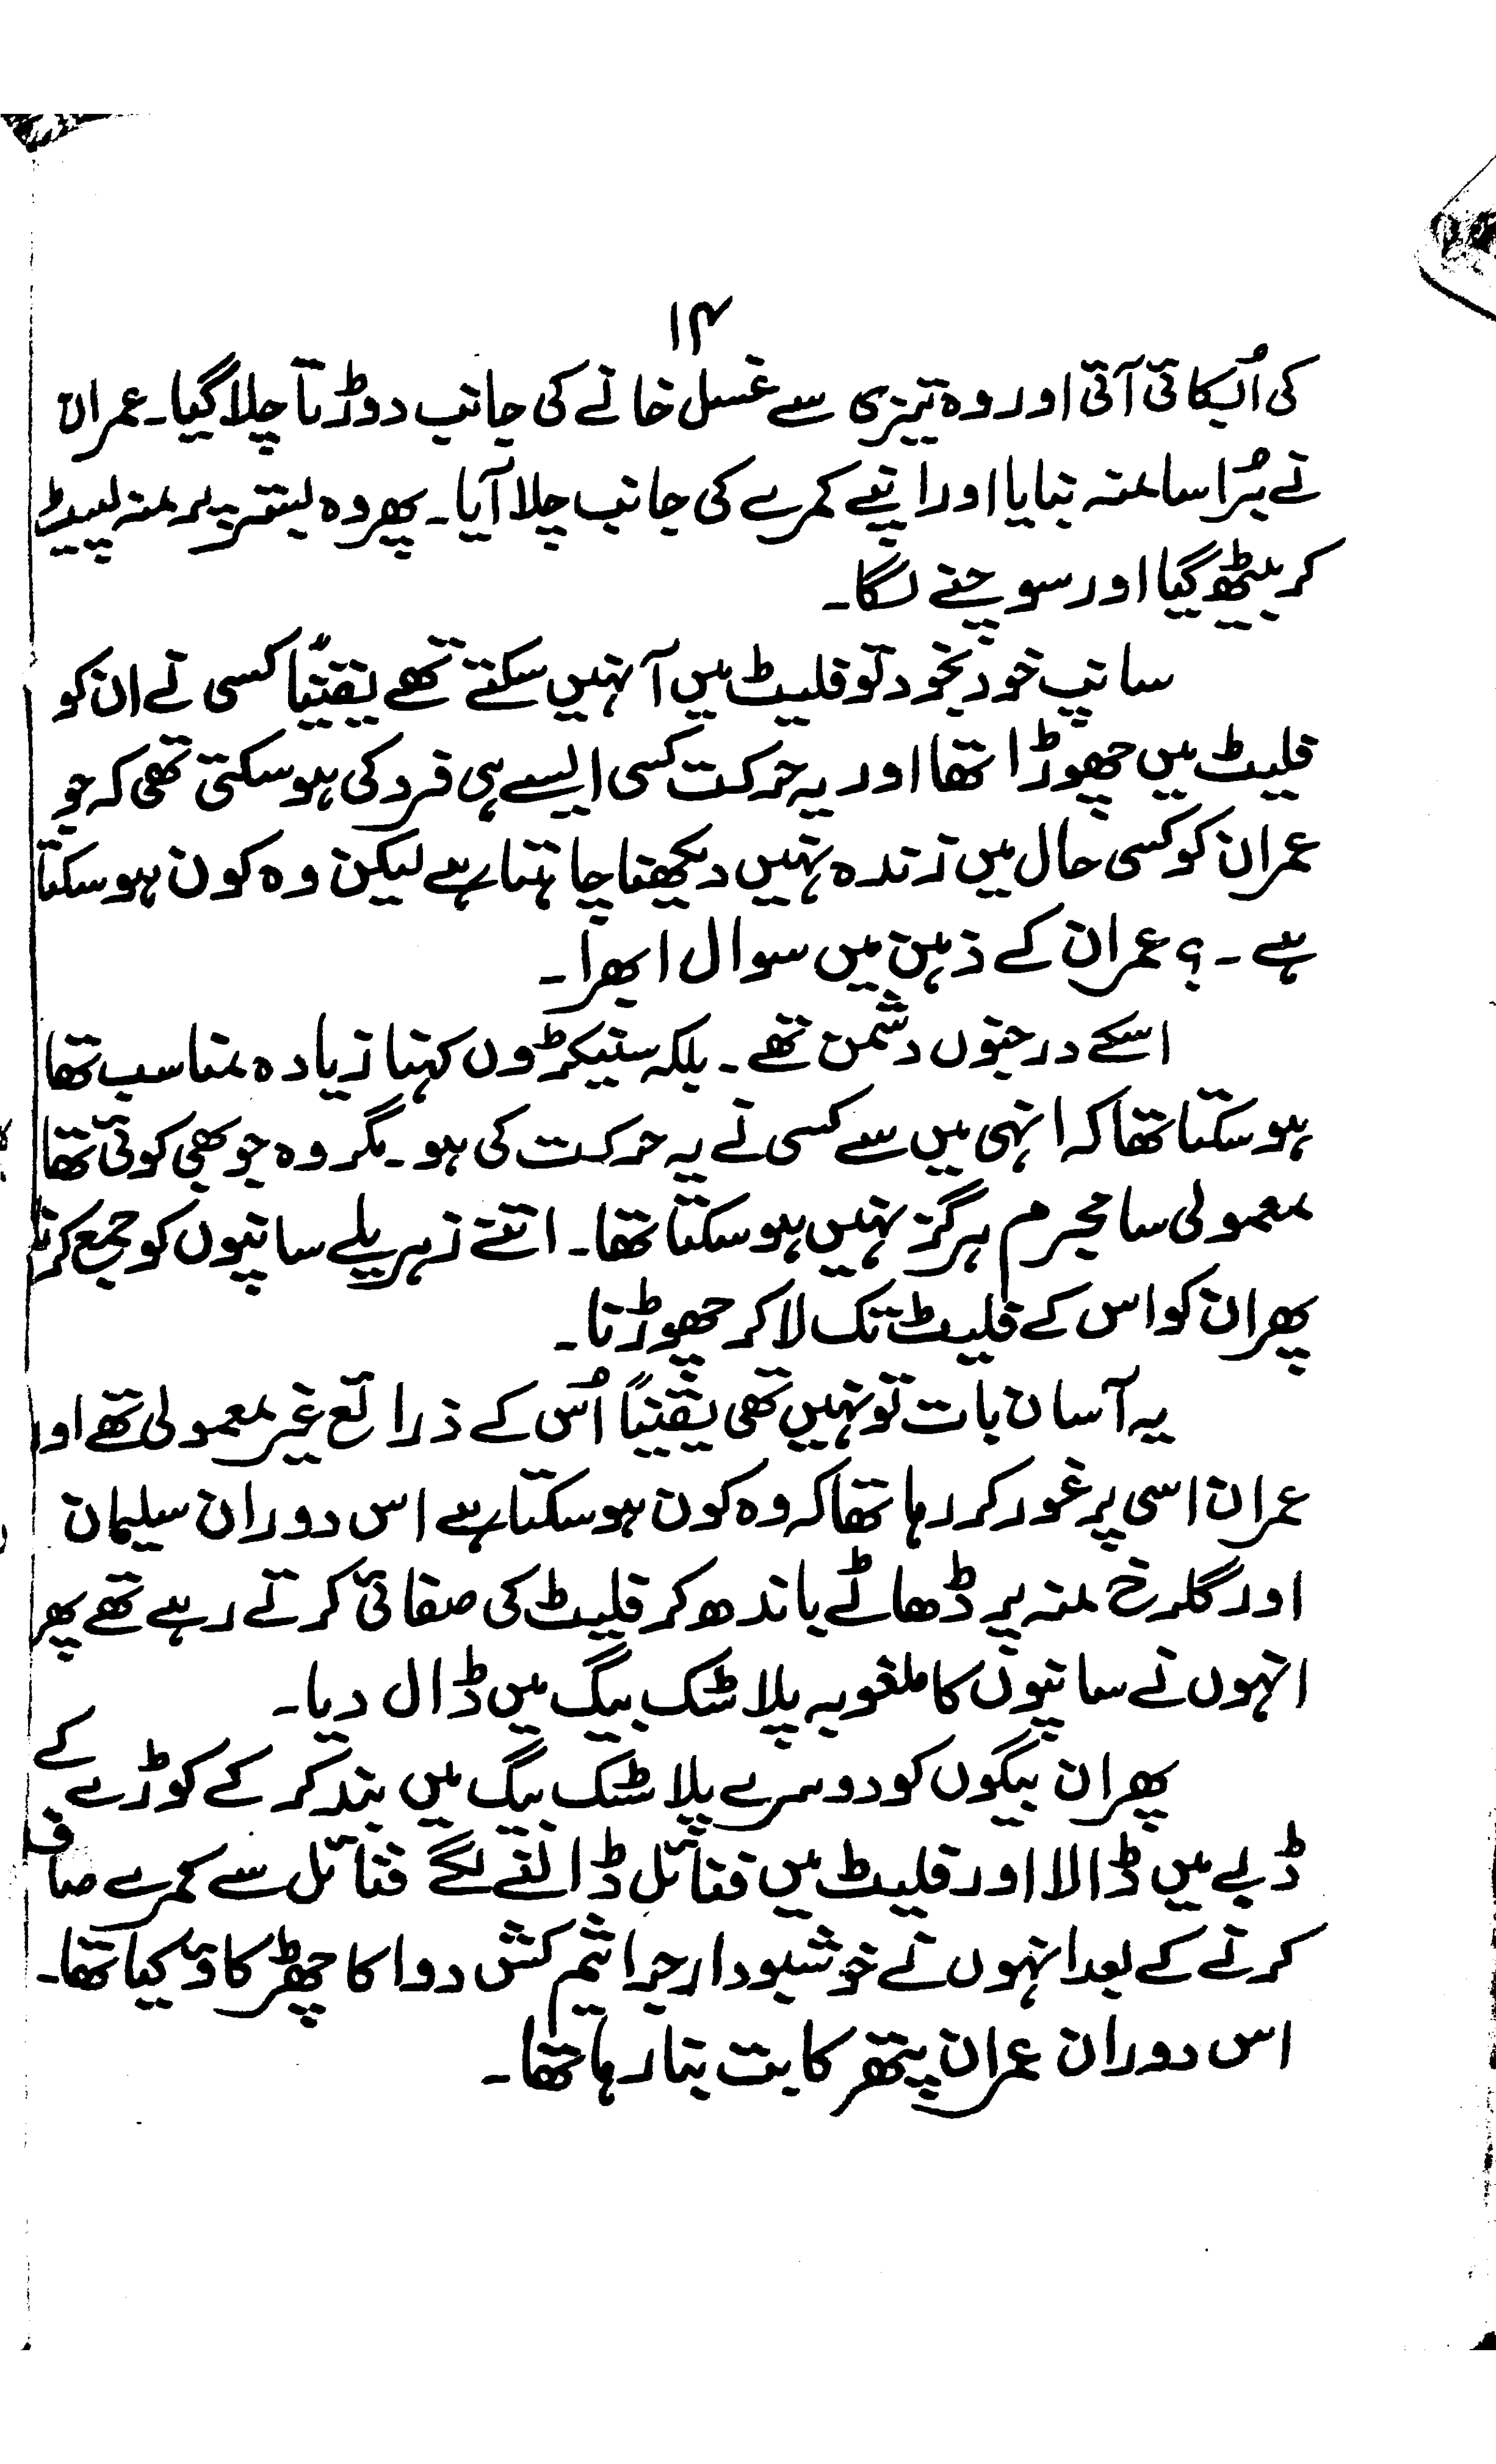 ۱۴
کی اُبکائی آئی اور وہ تیزی سے غسل خانے کی جانب دوڑتا چلا گیا۔ عمران
نے بُرا سا منہ بنایا اور اپنے کمرے کی جانب چلا آیا۔ پھر وہ بستر پر منہ لپیٹ
کر بیٹھ گیا اور سوچنے لگا۔
سانپ خود بخود تو فلیٹ میں آ نہیں سکتے تھے یقیناً کسی نے ان کو
فلیٹ میں چھوڑا تھا اور یہ حرکت کسی ایسے ہی فرد کی ہو سکتی تھی کہ جو
عمران کو کسی حال میں زندہ نہیں دیکھنا چاہتا ہے لیکن وہ کون ہو سکتا
ہے ۔؟ عمران کے ذہن میں سوال ابھرا۔
اسکے درجنوں دشمن تھے ۔ بلکہ سینکڑوں کہنا زیادہ مناسب تھا
ہو سکتا تھا کہ انہی میں سے کسی نے یہ حرکت کی ہو۔ مگر وہ جو بھی کوئی تھا
معمولی سا مجرم ہرگز نہیں ہو سکتا تھا۔ اتنے زہریلے سانپوں کو جمع کرنا
پھر ان کو اس کے فلیٹ تک لا کر چھوڑنا۔
یہ آسان بات تو نہیں تھی یقیناً اُس کے ذرائع غیر معمولی تھے اور
عمران اسی پر غور کر رہا تھا کہ وہ کون ہو سکتا ہے اس دوران سلیمان
اور گلرخ منہ پر ڈھاٹے باندھ کر فلیٹ کی صفائی کرتے رہے تھے پھر
انہوں نے سانپوں کا ملغوبہ پلاسٹک بیگ میں ڈال دیا۔
پھر ان بیگوں کو دوسرے پلاسٹک بیگ میں بند کر کے کوڑے کے
ڈبے میں ڈالا اور فلیٹ میں فنائل ڈالنے لگے فنائل سے کمرے صاف
کرنے کے بعد انہوں نے خوشبودار جراثیم کش دوا کا چھڑکاؤ کیا تھا۔
اس دوران عمران پتھر کا بت بنا رہا تھا۔